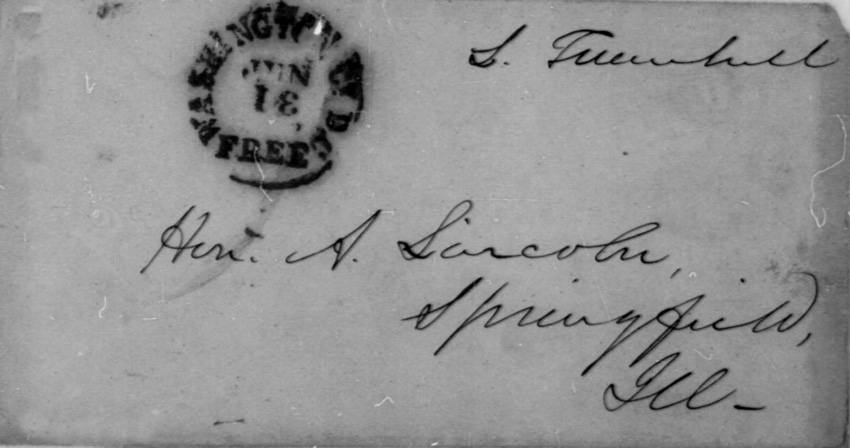 L. Trumbull
WASHINGTON CITY D.C.
JUN
18
FREE
Hon. A. Lincoln,
Springfield,
Ill-